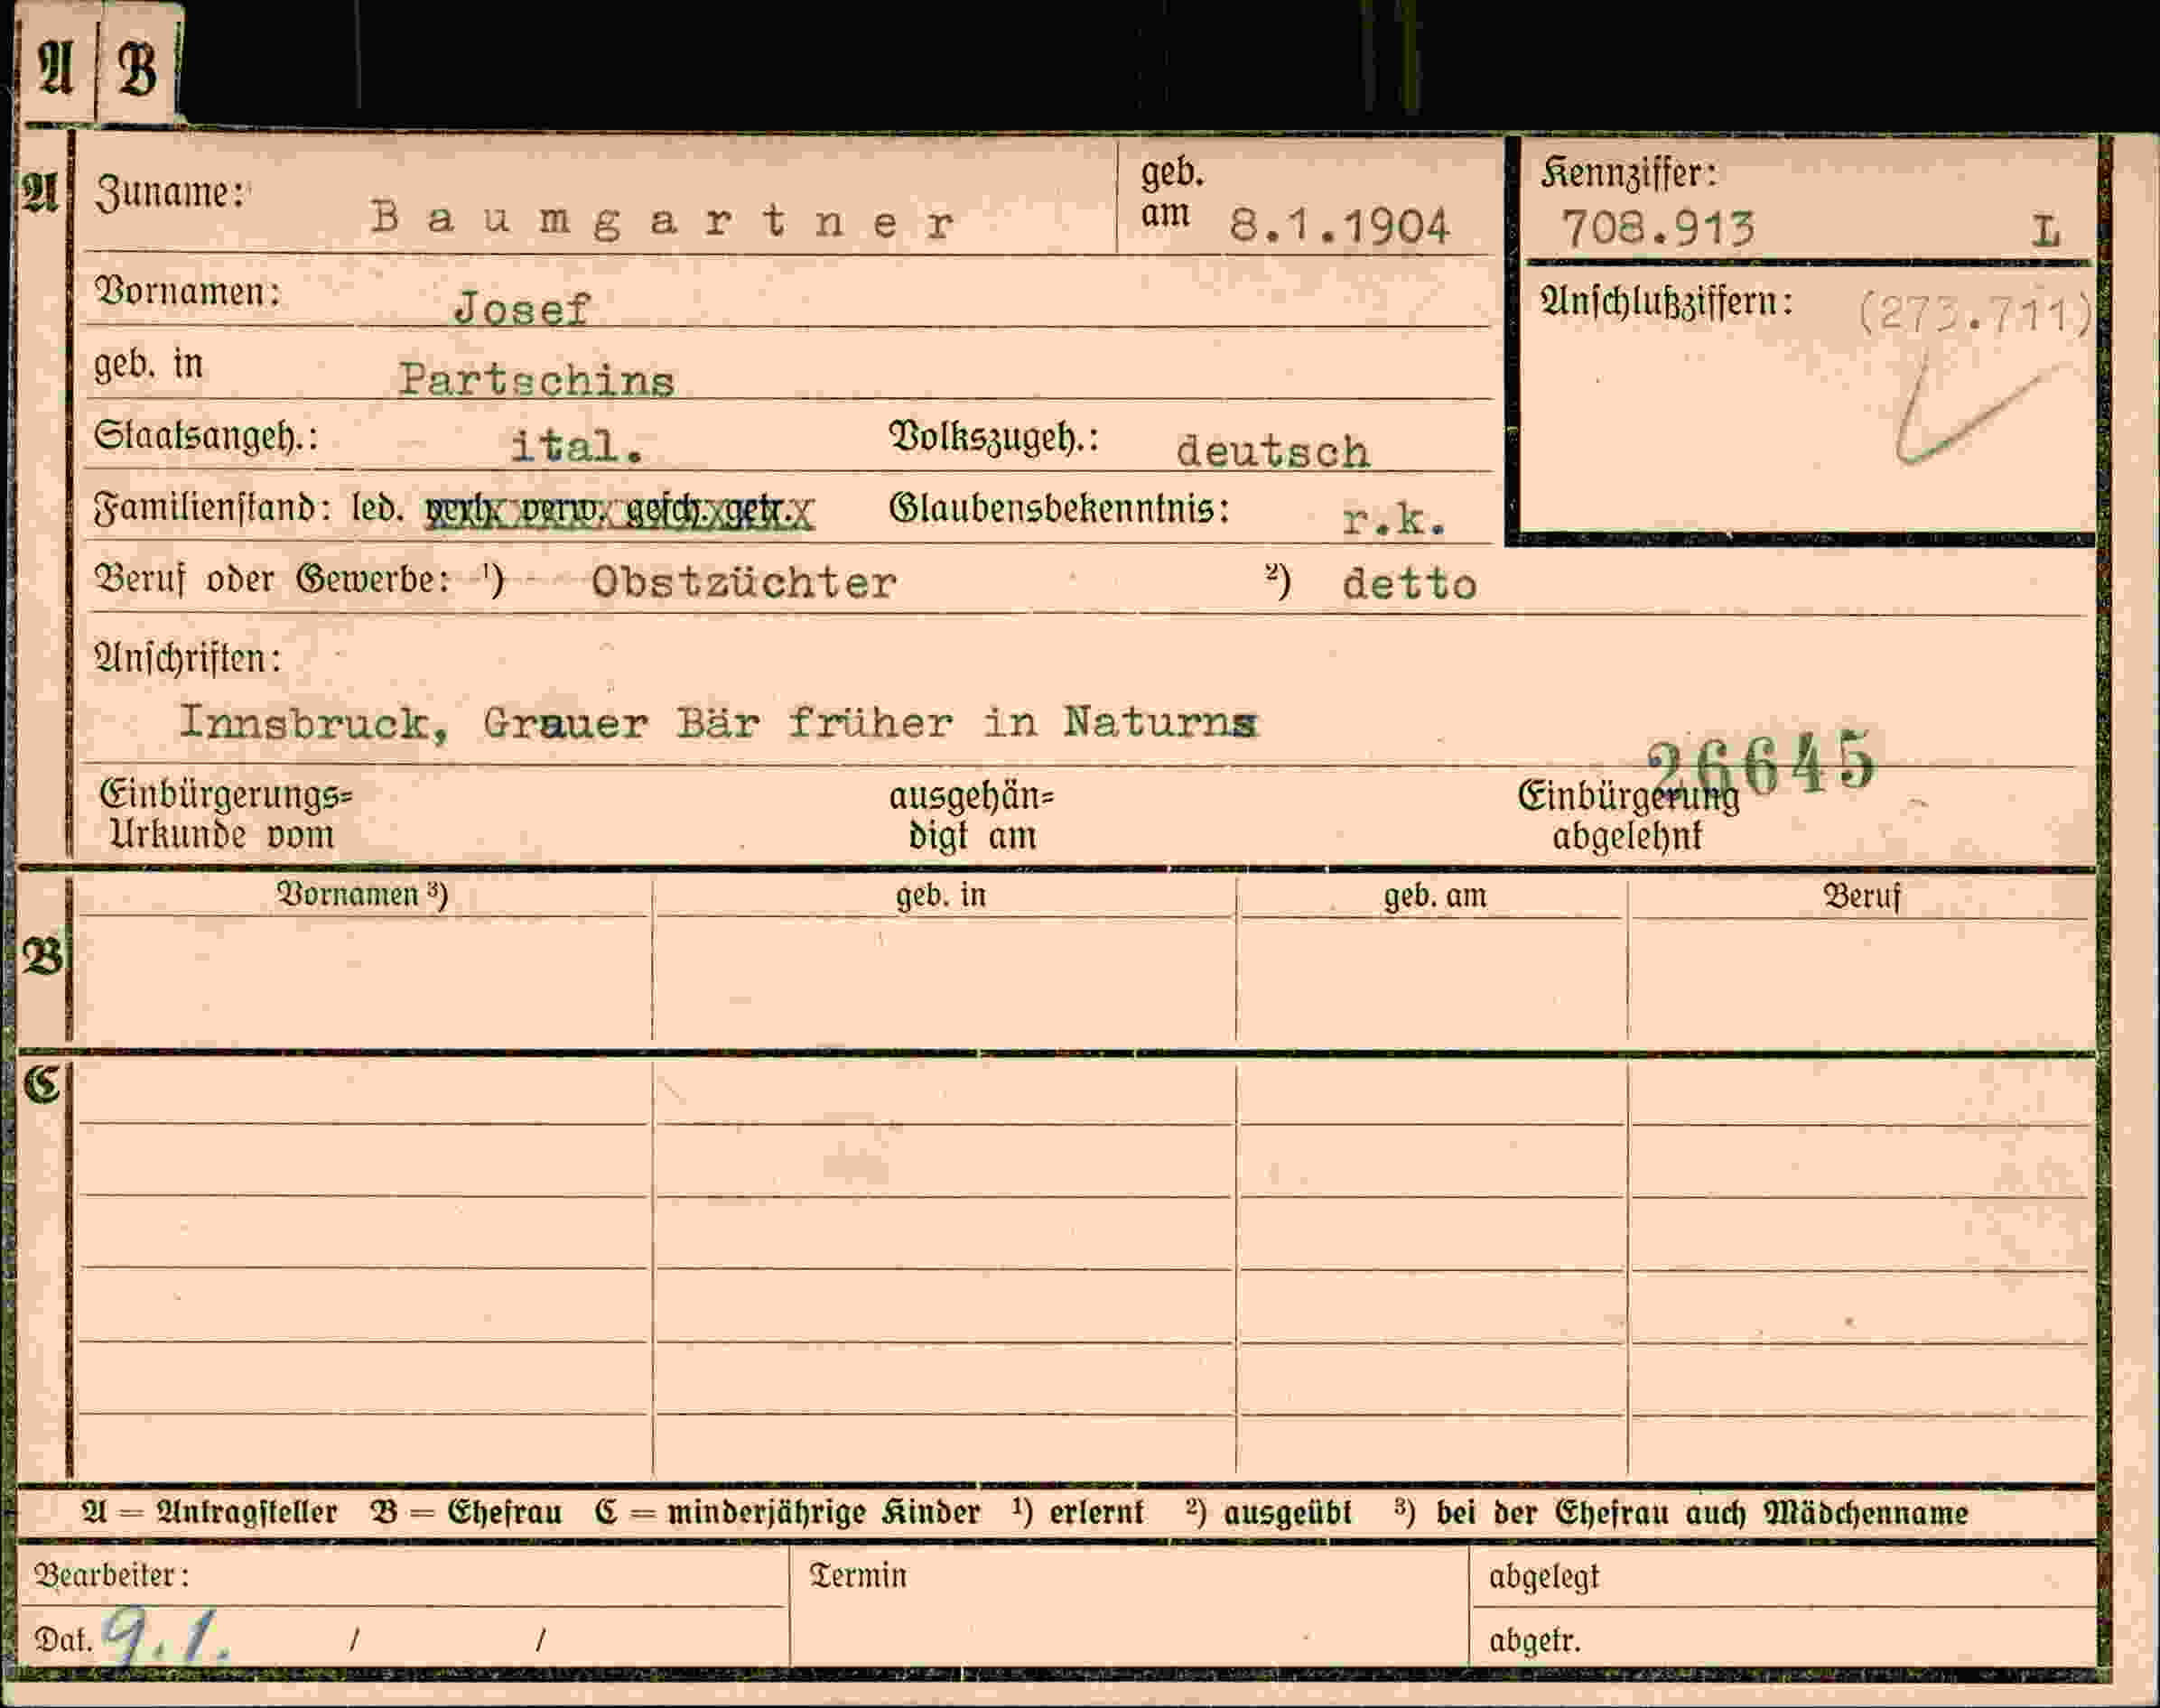 A B
A Zuname: Baumgartner geb. am 8.1.1904 Kennziffer: 708.913 L
Vornamen: Josef Anschlußziffern: (273.711)
geb. in Partschins
Staatsangeh.: ital. Volkszugeh.: deutsch
Familienstand: led. verh. verw. gesch. getr. Glaubensbekenntnis: r.k.
Beruf oder Gewerbe: 1) Obstzüchter 2) detto
Anschriften:
Innsbruck, Grauer Bär früher in Naturns
26645
Einbürgerungs= ausgehän= Einbürgerung
Urkunde vom digt am abgelehnt
Vornamen 3) geb. in geb. am Beruf
B
C
A = Antragsteller B = Ehefrau C = minderjährige Kinder 1) erlernt 2) ausgeübt 3) bei der Ehefrau auch Mädchenname
Bearbeiter: Termin abgelegt
Dat. 9.1. / / abgetr.